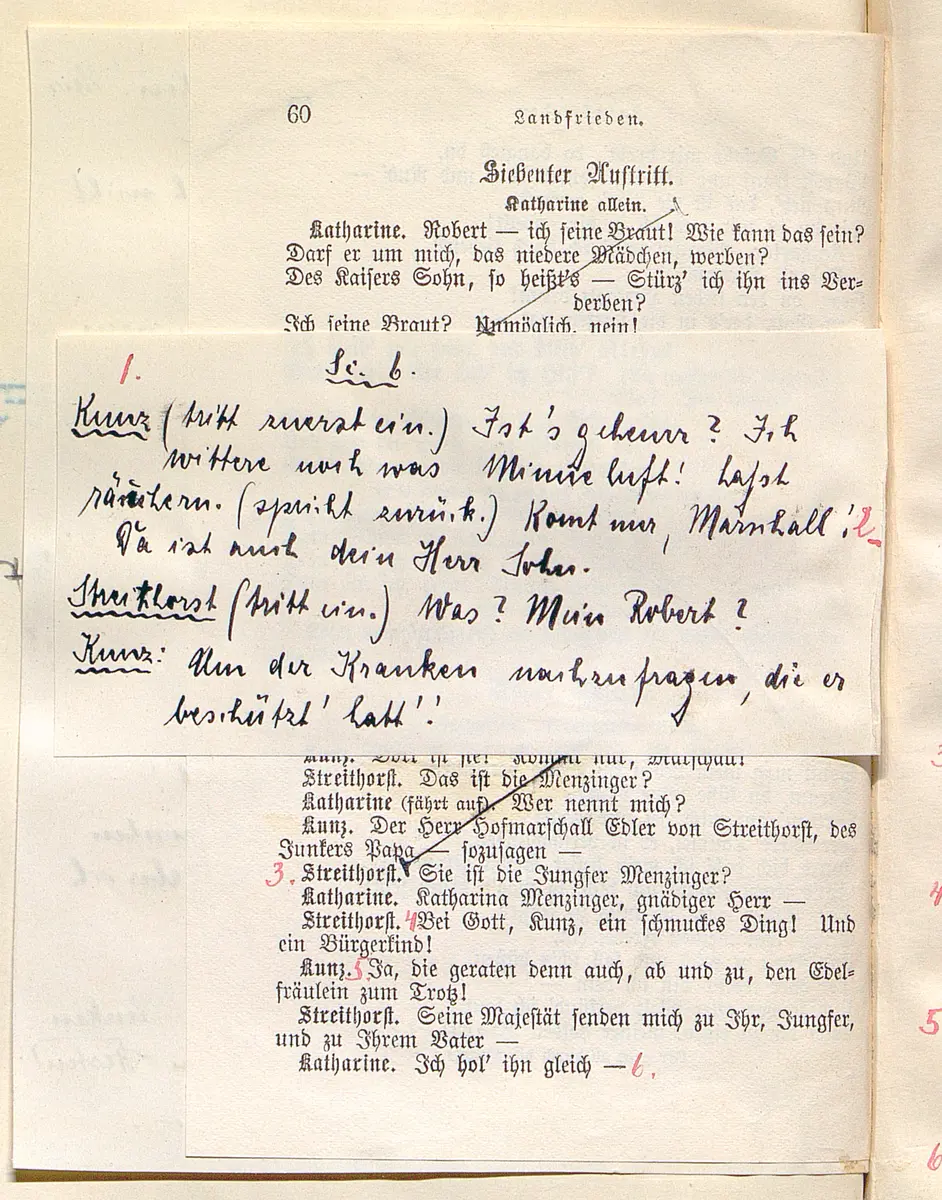 60 Landfrieden.
Siebenter Auftritt.
Katharine allein.
Katharine. Robert — ich seine Braut! Wie kann das sein?
Darf er um mich, das niedere Mädchen, werben?
Des Kaisers Sohn, so heißt's — Stürz' ich ihn ins Ver-
derben?
Ich seine Braut? Unmöglich, nein!
1. Sc. 6.
Kunz (tritt zuerst ein.) Ist's geheuer? Ich
wittere noch was Minneluft! Lasst
räuchern. (spricht zurück.) Komt nur, Marschall! 2
Da ist auch dein Herr Sohn.
Streithorst (tritt ein.) Was? Mein Robert?
Kunz: Um der Kranken nachzufragen, die er
beschützt' hatt'!
Kunz. Dort ist sie! Kommt nur, Marschall!
Streithorst. Das ist die Menzinger?
Katharine (fährt auf). Wer nennt mich?
Kunz. Der Herr Hofmarschall Edler von Streithorst, des
Junkers Papa — sozusagen —
3. Streithorst. Sie ist die Jungfer Menzinger?
Katharine. Katharina Menzinger, gnädiger Herr —
Streithorst. 4 Bei Gott, Kunz, ein schmuckes Ding! Und
ein Bürgerkind!
Kunz. 5 Ja, die geraten denn auch, ab und zu, den Edel-
fräulein zum Trotz!
Streithorst. Seine Majestät senden mich zu Ihr, Jungfer,
und zu Ihrem Vater —
Katharine. Ich hol' ihn gleich — 6.
3
4
5
6